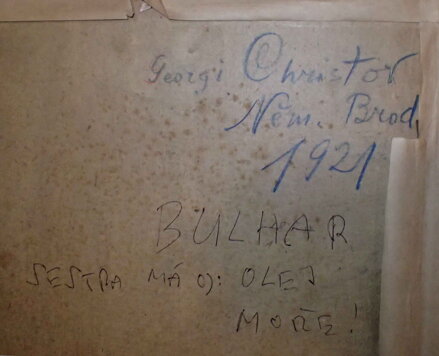 Georgi Christov
Něm. Brod,
1921
BULHAR
SESTRA MÁ OJ: OLEJ
MOŘE!